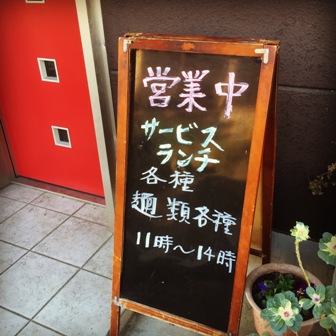 営業中
サービス
ランチ
各種
麺類各種
11時〜14時